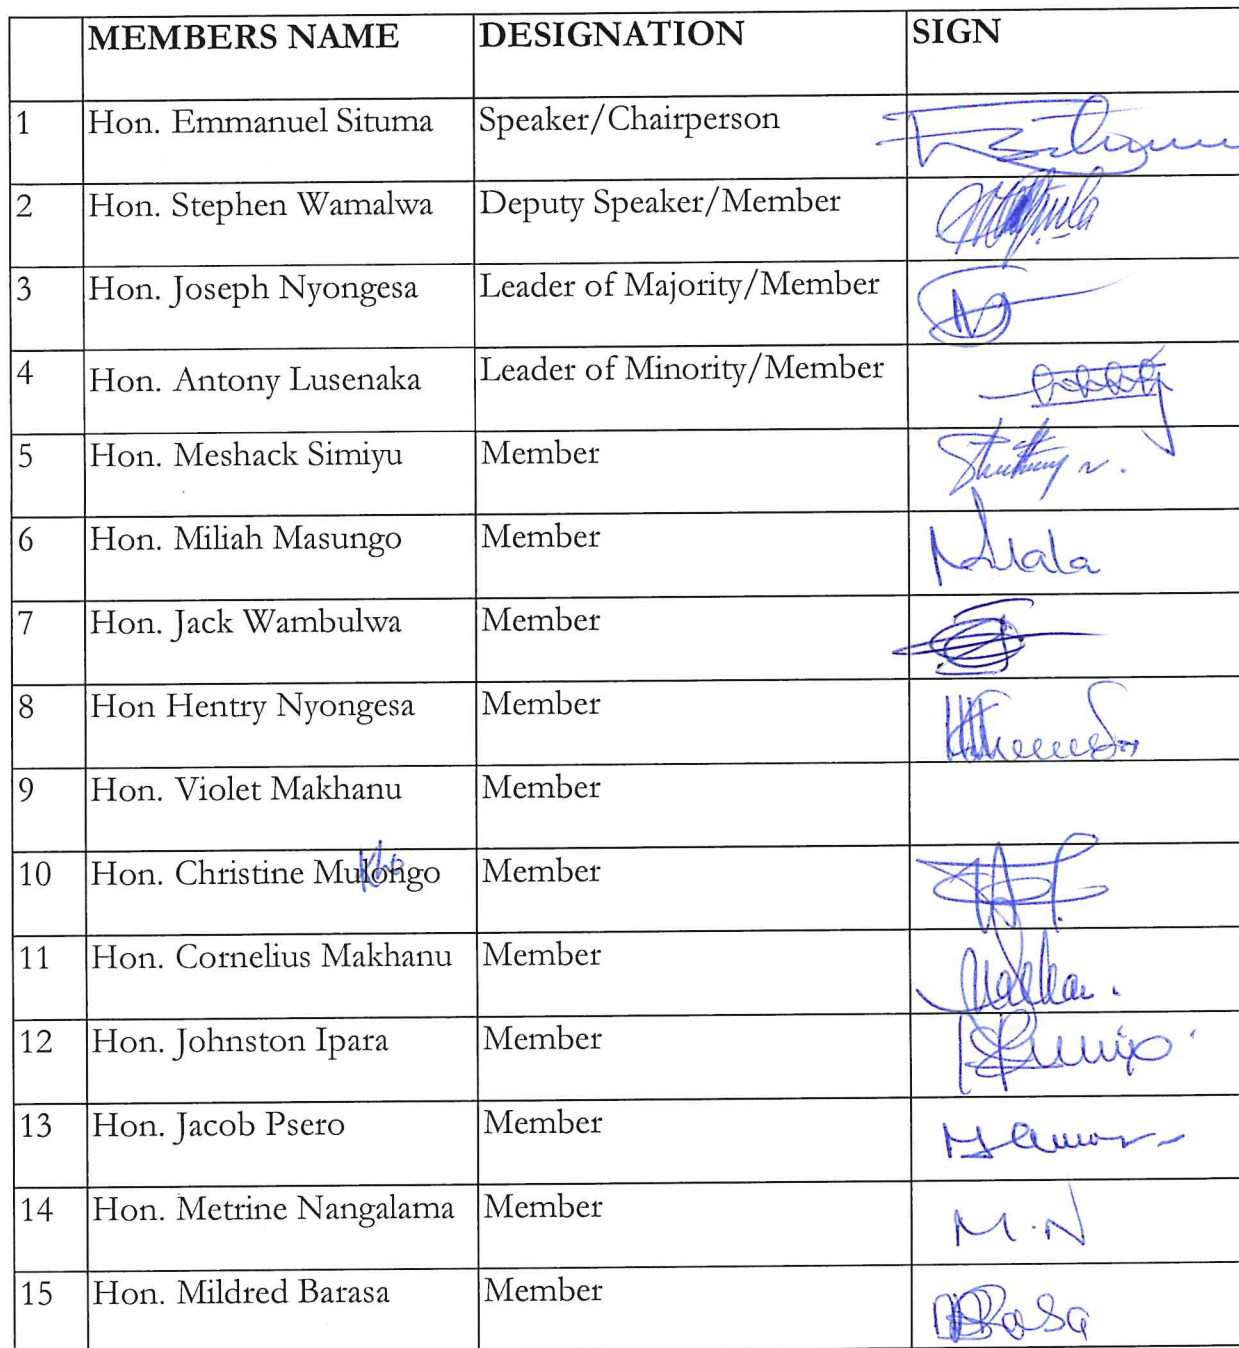 MEMBERS NAME DESIGNATION SIGN
1 Hon. Emmanuel Situma Speaker/Chairperson
2 Hon. Stephen Wamalwa Deputy Speaker/Member
3 Hon. Joseph Nyongesa Leader of Majority/Member
4 Hon. Antony Lusenaka Leader of Minority/Member
5 Hon. Meshack Simiyu Member
6 Hon. Miliah Masungo Member
7 Hon. Jack Wambulwa Member
8 Hon Hentry Nyongesa Member
9 Hon. Violet Makhanu Member
10 Hon. Christine Mulongo Member
11 Hon. Cornelius Makhanu Member
12 Hon. Johnston Ipara Member
13 Hon. Jacob Psero Member
14 Hon. Metrine Nangalama Member M.N
15 Hon. Mildred Barasa Member